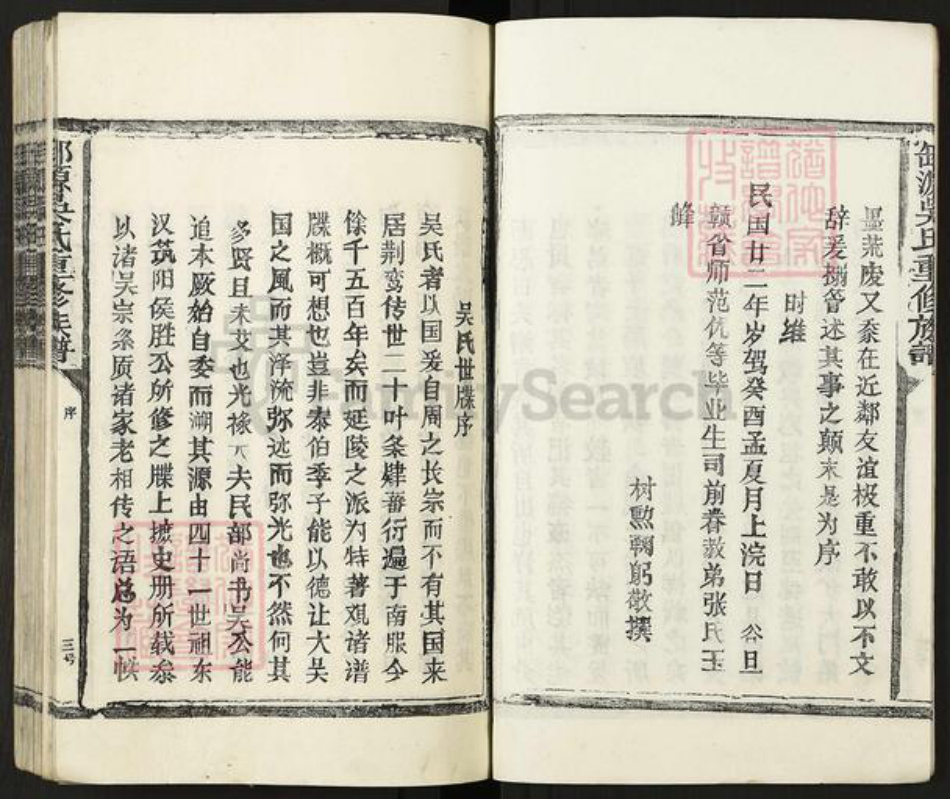 墨荒废又忝在近鄰友谊极重不敢以不文
辞爰搦管述其事之颠末是为序
时维
民国廿二年岁驾癸酉孟夏月上浣日 谷旦
赣省师范优等毕业生司前眷教弟张氏玉
峰
树勲鞠躬敬撰
吴氏重修族谱
吴氏世牒序
吴氏者以国爰自周之长宗而不有其国来
居荆蛮传世二十叶条肄蕃衍遍于南服今
馀千五百年矣而延陵之派为特著观诸谱
牒概可想也岂非泰伯季子能以德让大吴
国之風而其泽流弥远而弥光也不然何其
多贤且未艾也光禄大夫民部尚书吴公能
追本厥始自委而溯其源由四十一世祖东
汉筑阳侯胜公所修之牒上摭史册所载叅
以诸吴宗系质诸家老相传之语总为一帙
源吴氏重修族谱
序
三号
FamilySearch